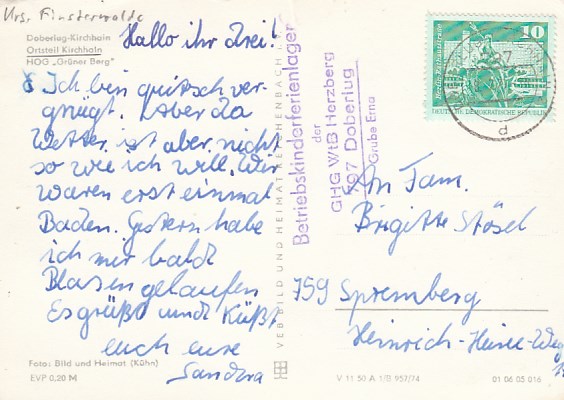 Krs. Finsterwalde
Doberlug-Kirchhain
Ortsteil Kirchhain
HOG „Grüner Berg"
Hallo ihr drei!
Ich bin quitsch ver-
gnügt. Aber da
Wetter ist aber nicht
so wie ich will. Wir
waren erst einmal
Baden. Gestern habe
ich mir bald
Blasen gelaufen
Es grüßt und Küßt
euch eure
Sandra
Foto: Bild und Heimat (Kühn)
EVP 0,20 M
VEB BILD UND HEIMAT REICHENBACH
Betriebskinderferienlager
der
GHG WtB Herzberg
797 Doberlug
Grube Erna
10
DEUTSCHE DEMOKRATISCHE REPUBLIK
d
An Fam.
Brigitte Stösel
759 Spremberg
Heinrich-Heine-Weg
V 11 50 A 1/B 957/74
01 06 05 016